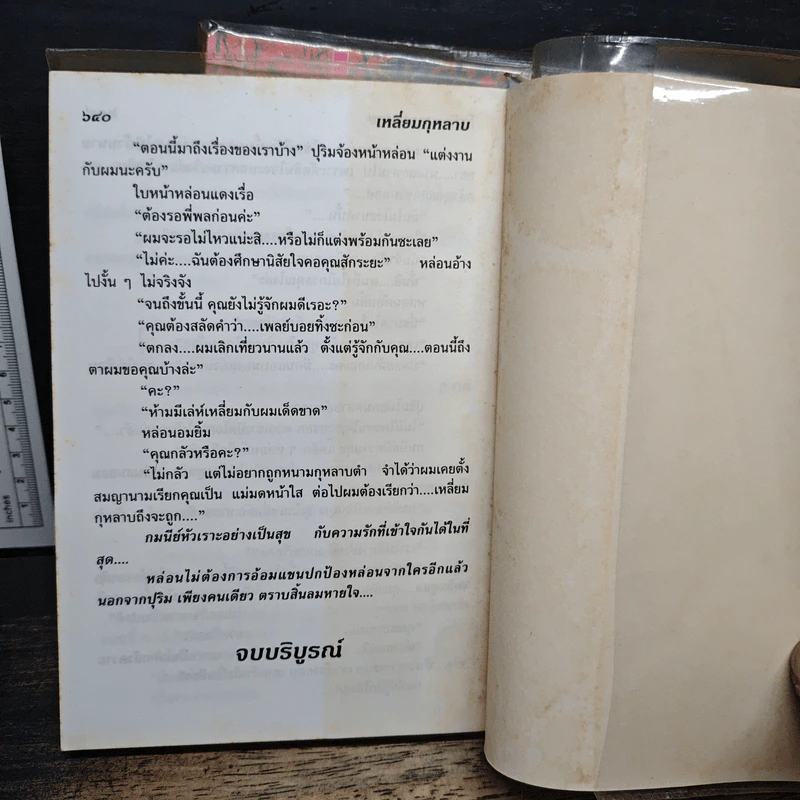 ๖๔๐
เหลี่ยมกุหลาบ
“ตอนนี้มาถึงเรื่องของเราบ้าง” ปุริมจ้องหน้าหล่อน “แต่งงาน
กับผมนะครับ”
ใบหน้าหล่อนแดงเรื่อ
“ต้องรอพี่พลก่อนค่ะ”
“ผมจะรอไม่ไหวแน่ะสิ....หรือไม่ก็แต่งพร้อมกันซะเลย”
“ไม่ค่ะ....ฉันต้องศึกษานิสัยใจคอคุณสักระยะ” หล่อนอ้าง
ไปงั้น ๆ ไม่จริงจัง
“จนถึงขั้นนี้ คุณยังไม่รู้จักผมดีเรอะ?”
“คุณต้องสลัดคำว่า....เพลย์บอยทิ้งซะก่อน”
“ตกลง....ผมเลิกเที่ยวนานแล้ว ตั้งแต่รู้จักกับคุณ....ตอนนี้ถึง
ตาผมขอคุณบ้างล่ะ”
“คะ?”
“ห้ามมีเล่ห์เหลี่ยมกับผมเด็ดขาด”
หล่อนอมยิ้ม
“คุณกลัวหรือคะ?”
“ไม่กลัว แต่ไม่อยากถูกหนามกุหลาบตำ จำได้ว่าผมเคยตั้ง
สมญานามเรียกคุณเป็น แม่มดหน้าใส ต่อไปผมต้องเรียกว่า....เหลี่ยม
กุหลาบถึงจะถูก....”
กมนีย์หัวเราะอย่างเป็นสุข กับความรักที่เข้าใจกันได้ในที่
สุด....
หล่อนไม่ต้องการอ้อมแขนปกป้องหล่อนจากใครอีกแล้ว
นอกจากปุริม เพียงคนเดียว ตราบสิ้นลมหายใจ....
จบบริบูรณ์
inches